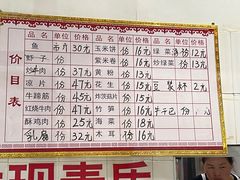 价目表
品名 单位 价格 品名 单位 价格 品名 单位 价格
鱼 片 30元 玉米饼 份 16元 绿菜 份 12元
野子 份 紫米卷 份 16元 炒绿菜 份 13元
炒牛肉 份 37元 黄粉 份 13元
凉片 份 47元 花生 份 15元 豆浆 杯 2元
牛蹄筋 份 45元 炸茨菇片 份 15元
红烧牛肉 份 47元 竹笋 份 16元 牛干巴 份
酥鸡肉 份 25元 海菜 份 18元
乳扇 份 32元 木耳 份 16元